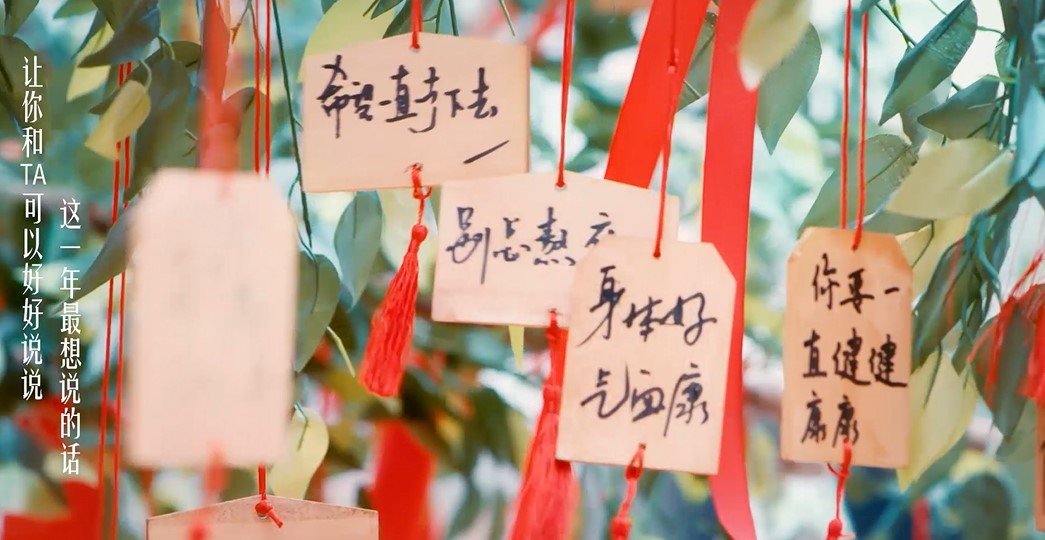 让你和TA可以好好说说
这一年最想说的话
希望一直下去
别总熬
身体好
气血康
你要一
直健健
康康